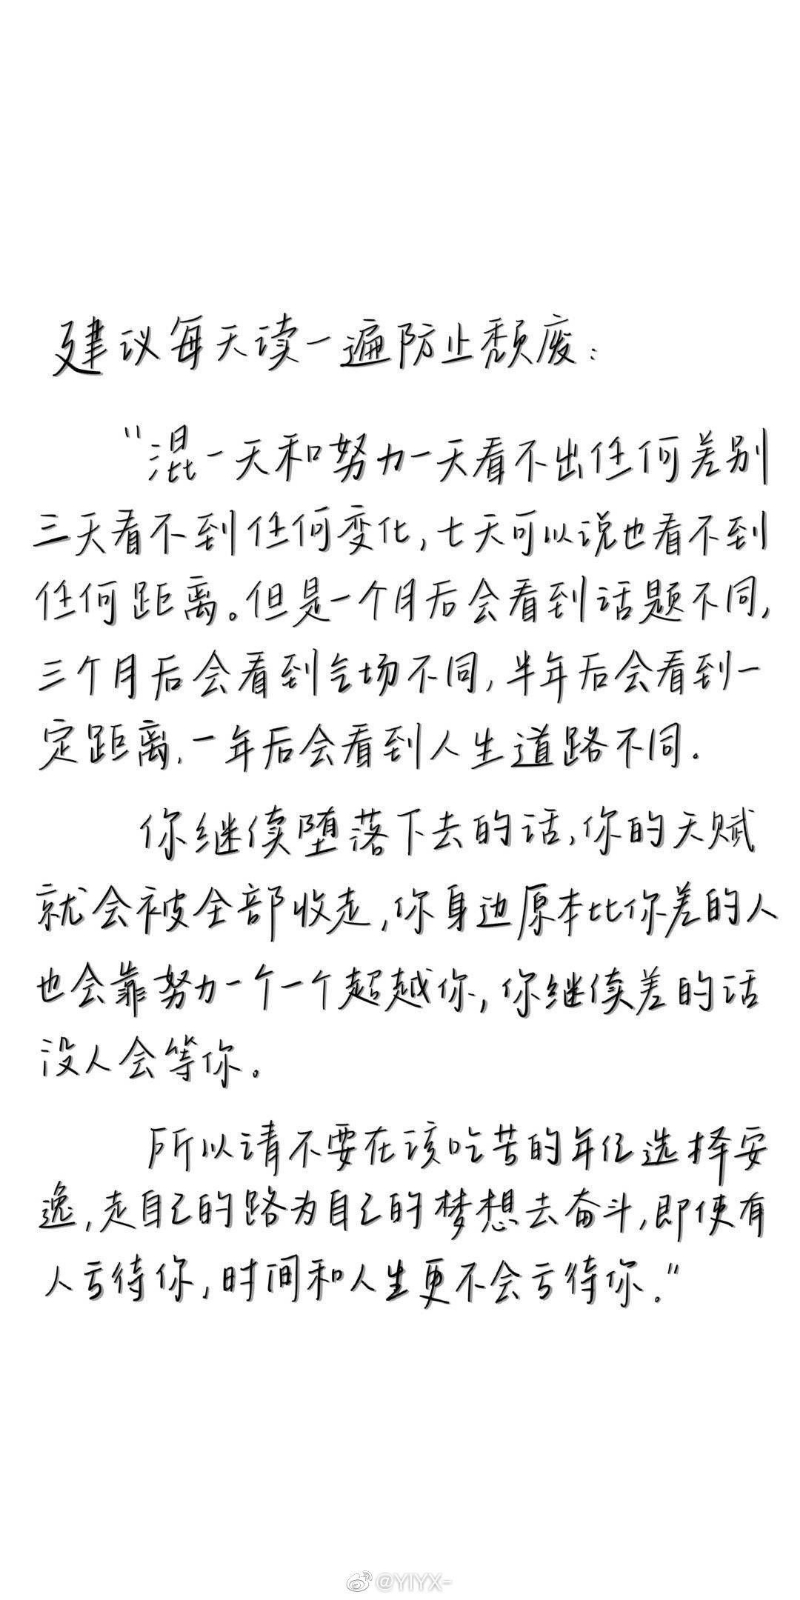 建议每天读一遍防止颓废:
"混一天和努力一天看不出任何差别
三天看不到任何变化,七天可以说也看不到
任何距离。但是一个月后会看到话题不同,
三个月后会看到气场不同,半年后会看到一
定距离.一年后会看到人生道路不同.
你继续堕落下去的话,你的天赋
就会被全部收走,你身边原本比你差的人
也会靠努力一个一个超越你,你继续差的话
没人会等你。
所以请不要在该吃苦的年纪选择安
逸,走自己的路为自己的梦想去奋斗,即使有
人亏待你,时间和人生更不会亏待你."
@YIYX-